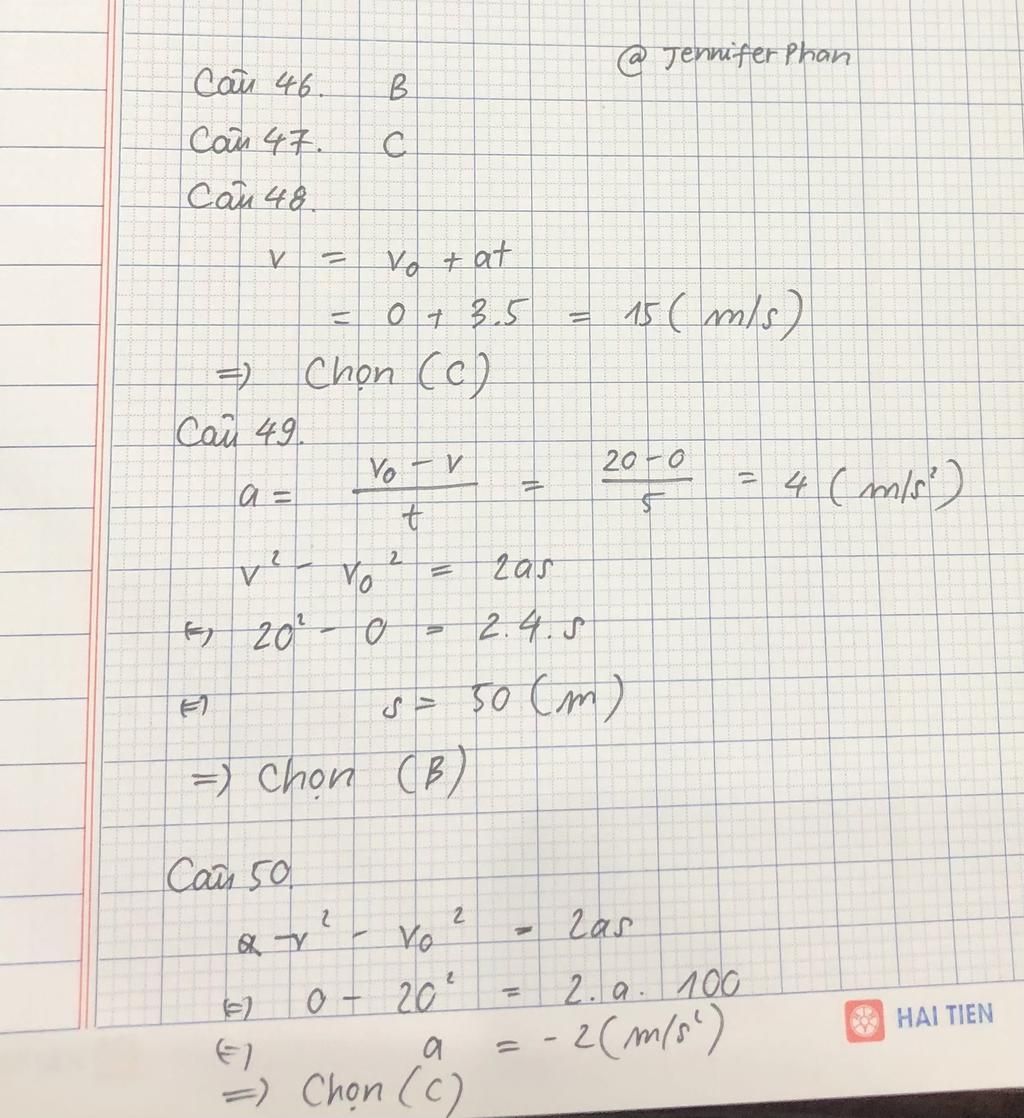 @ Jennifer Phan
Câu 46. B
Câu 47. C
Câu 48.
v = v₀ + at
= 0 + 3.5 = 15 (m/s)
=> Chọn (C)
Câu 49.
a = (v₀ - v)/t = (20 - 0)/5 = 4 (m/s²)
v² - v₀² = 2as
<=> 20² - 0 = 2.4.s
<=> s = 50 (m)
=> Chọn (B)
Câu 50
v² - v₀² = 2as
<=> 0 - 20² = 2.a.100
HAI TIEN
<=> a = -2 (m/s²)
=> Chọn (C)